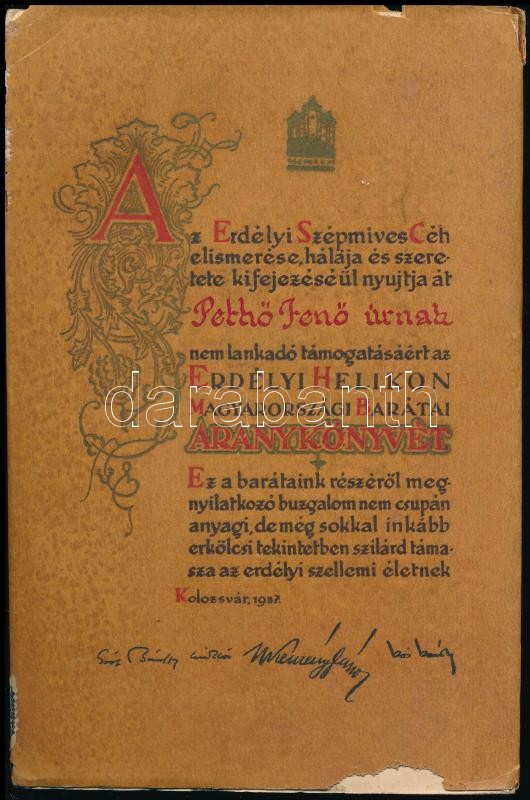 Az Erdélyi Szépmives Céh
elismerése, hálája és szere-
tete kifejezéséül nyujtja át
Pethő Jenő úrnak
nem lankadó támogatásáért az
ERDÉLYI HELIKON
MAGYARORSZÁGI BARÁTAI
ARANYKÖNYVÉT
Ez a barátaink részéről meg-
nyilatkozó buzgalom nem csupán
anyagi, de még sokkal inkább
erkölcsi tekintetben szilárd táma-
sza az erdélyi szellemi életnek
Kolozsvár, 1937.
Gróf Bánffy Miklós Kemény János Kós Károly
darabanth